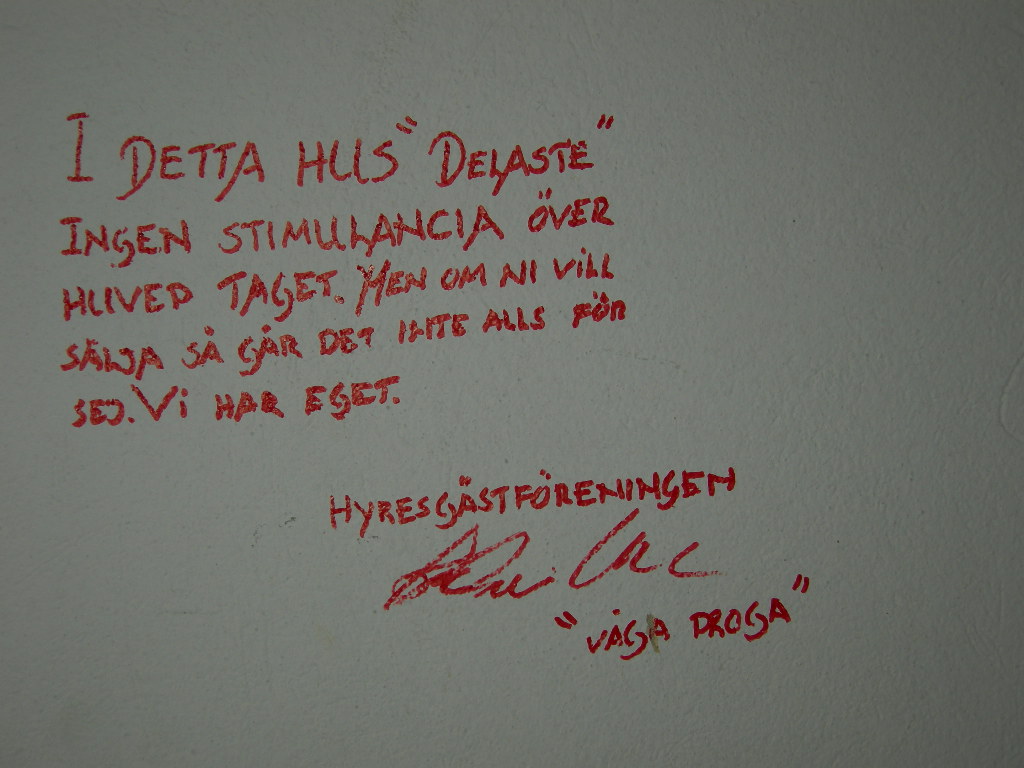 I DETTA HUS "DELASTE"
INGEN STIMULANCIA ÖVER
HUVED TAGET. MEN OM NI VILL
SÄLJA SÅ GÅR DET INTE ALLS FÖR
SEJ. VI HAR EGET.
HYRESGÄSTFÖRENINGEN
"VÅGA DROGA"